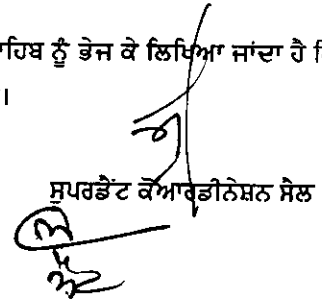 ਾਹਿਬ ਨੂੰ ਭੇਜ ਕੇ ਲਿਖਿਆ ਜਾਂਦਾ ਹੈ
।
ਸੁਪਰਡੈਂਟ ਕੋਆਰਡੀਨੇਸ਼ਨ ਸੈਲ